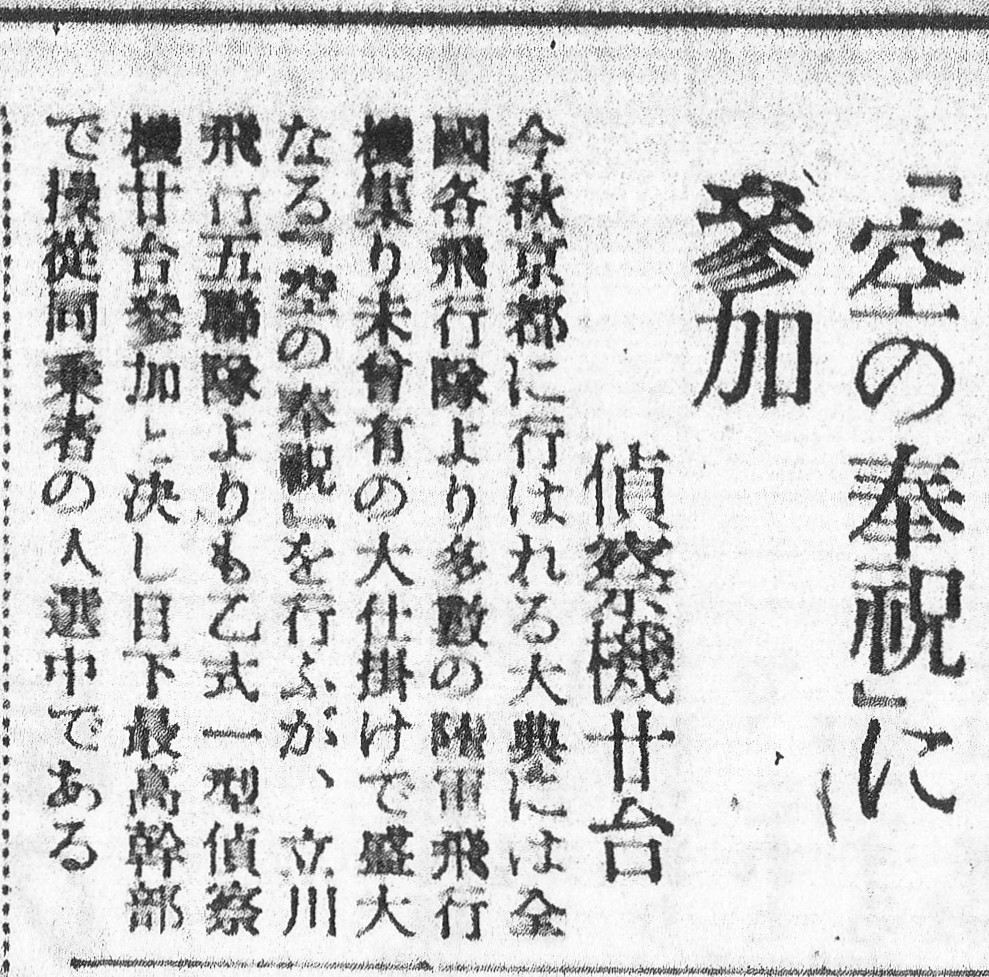 「空の奉祝」に
參加
偵察機廿台
今秋京都に行はれる大典には全
國各飛行隊より多數の陸軍飛行
機集り未曾有の大仕掛けで盛大
なる「空の奉祝」を行ふが、立川
飛行五聯隊よりも乙式一型偵察
機廿台參加と决し目下最高幹部
で操從同乘者の人選中である